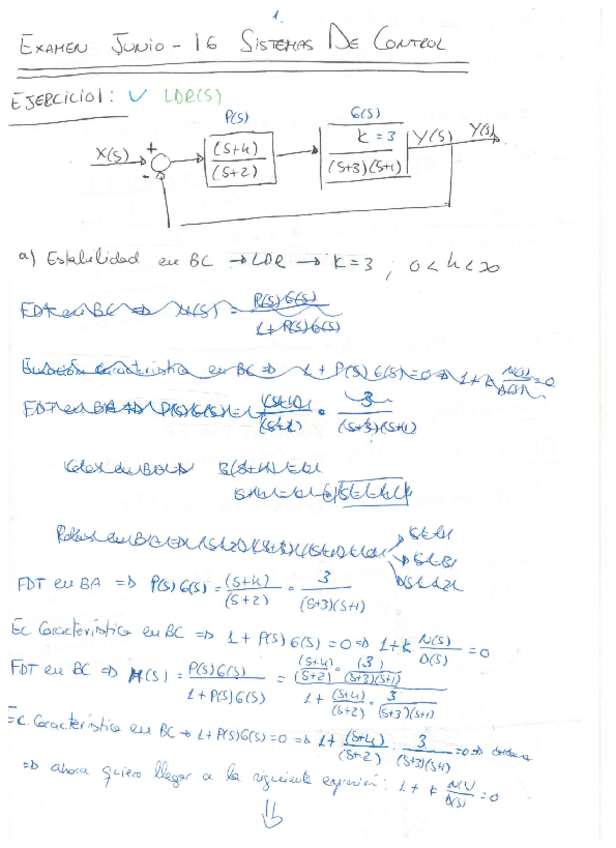 1.
EXAMEN JUNIO-16 SISTEMAS DE CONTROL
EJERCICIO1: ✓ LDR(S)
P(S) G(S)
X(S) + - (S+k)/(S+2) k = 3/(S+3)(S+1) Y(S) Y(S)
a) Estabilidad en BC → LDR → k = 3 ; 0 < k < ∞
FDT en BC => H(S) = P(S)G(S)/1+P(S)G(S)
en BC => 1 + P(S)G(S)=0 => 1+k N(S)/D(S)=0
FDT en BA => P(S)G(S) = (S+k)/(S+2) · 3/(S+3)(S+1)
FDT en BA => P(S)G(S) = (S+k)/(S+2) · 3/(S+3)(S+1)
Ec. Característica en BC => 1 + P(S)G(S) = 0 => 1+k · N(S)/D(S) = 0
FDT en BC => H(S) = P(S)G(S)/1+P(S)G(S) = (S+k)/(S+2) · (3)/(S+3)(S+1) / 1 + (S+k)/(S+2) · 3/(S+3)(S+1)
Ec. Característica en BC → 1+P(S)G(S)=0 => 1+ (S+k)/(S+2) · 3/(S+3)(S+1) =0 =>
=> ahora quiero llegar a la siguiente expresión: 1+k N(S)/D(S) = 0
⇓